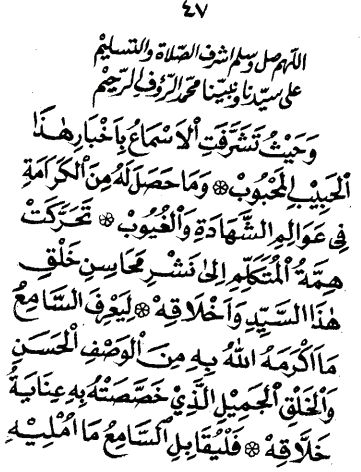 ٤٧
اللهم صل وسلم اشرف الصلاة والتسليم
على سيدنا ونبينا محمد الرؤف الرحيم
وَحَيْثُ تَشَرَّفَتِ الْاَسْمَاعُ بِاَخْبَارِ هٰذَا
الْحَبِيْبِ الْمَحْبُوْبِ ۞ وَمَا حَصَلَ لَهُ مِنَ الْكَرَامَةِ
فِى عَوَالِمِ الشَّهَادَةِ وَالْغُيُوْبِ ۞ تَحَرَّكَتْ
هِمَّةُ الْمُتَكَلِّمِ اِلىٰ نَشْرِ مَحَاسِنِ خَلْقِ
هٰذَا السَّيِّدِ وَاَخْلَاقِهْ ۞ لِيَعْرِفَ السَّامِعُ
مَا اَكْرَمَهُ اللهُ بِهِ مِنَ الْوَصْفِ الْحَسَنِ
وَالْخَلْقِ الْجَمِيْلِ الَّذِيْ خَصَّصَتْهُ بِهِ عِنَايَةُ
خَلَّاقِهْ ۞ فَلْيُقَابِلِ السَّامِعُ مَا اُمْلِيْهِ